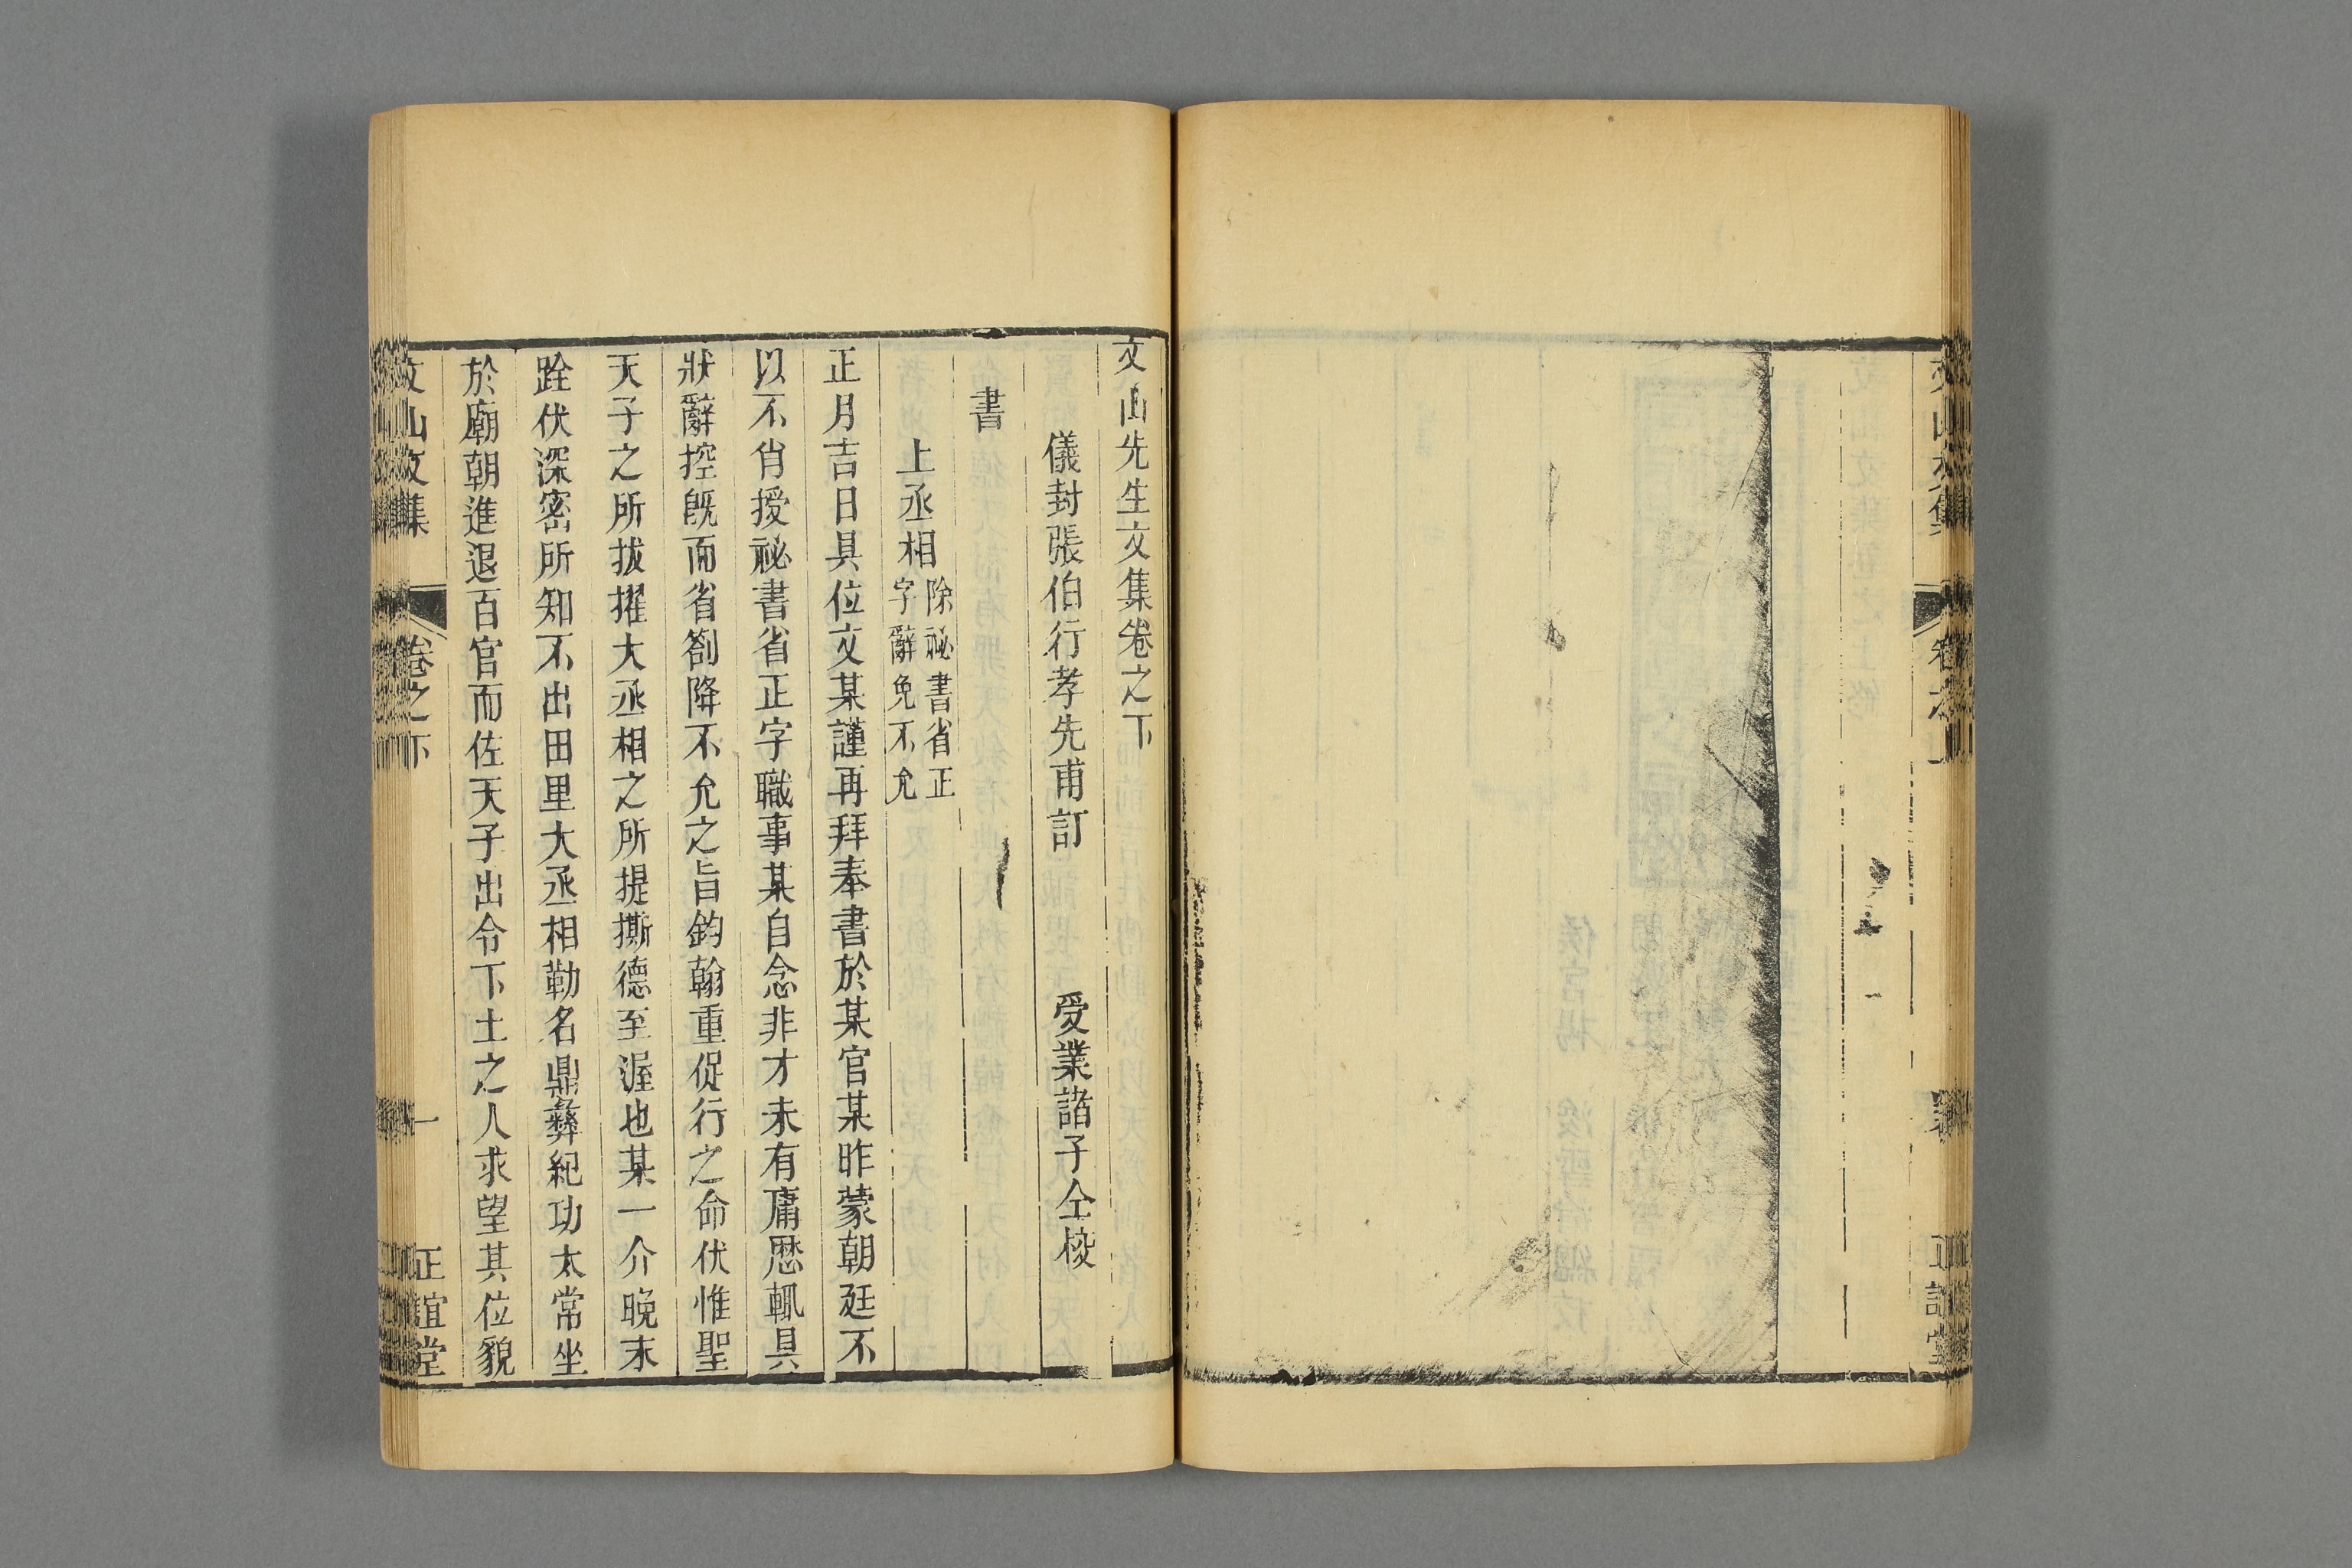 文山先生文集卷之下
儀封張伯行孝先甫訂　受業諸子仝校
書
上丞相除祕書省正字辭免不允
正月吉日具位文某謹再拜奉書於某官某昨蒙朝廷不
以不肖授祕書省正字職事某自念非才未有庸歷輒具
狀辭控旣而省劄降不允之旨鈞翰重促行之命伏惟聖
天子之所拔擢大丞相之所提撕德至渥也某一介晚末
跧伏深密所知不出田里大丞相勒名鼎彝紀功太常坐
於廟朝進退百官而佐天子出令下土之人求望其位貌
文山文集　卷之下　一　正誼堂